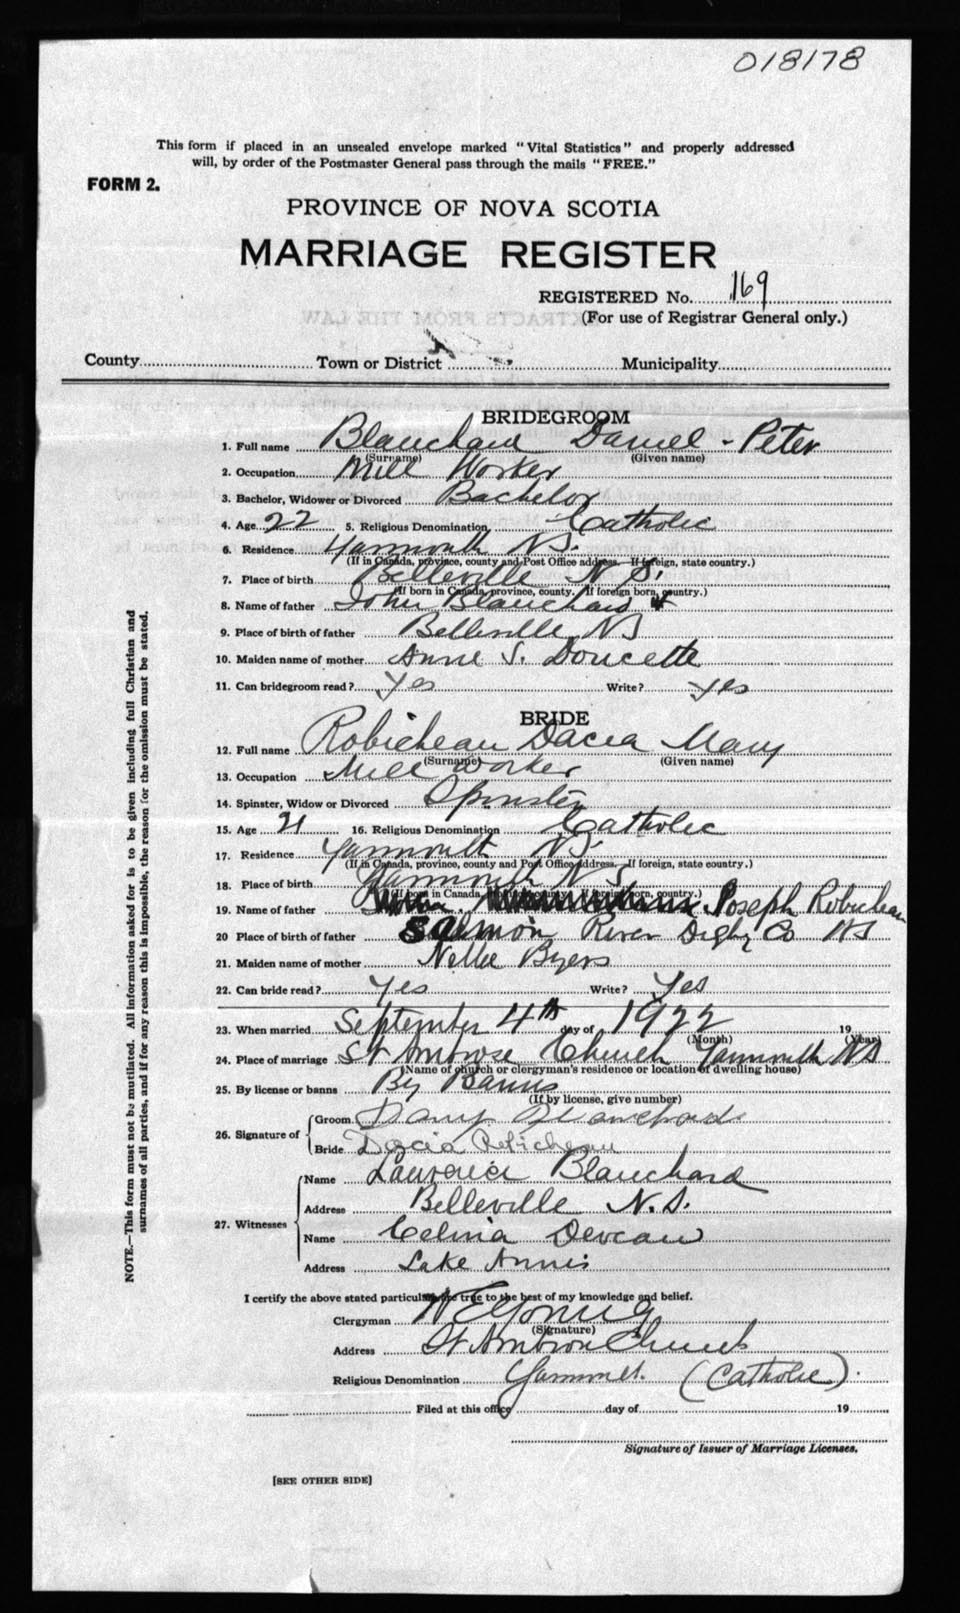 018178
This form if placed in an unsealed envelope marked "Vital Statistics" and properly addressed
will, by order of the Postmaster General pass through the mails "FREE."
FORM 2.
PROVINCE OF NOVA SCOTIA
MARRIAGE REGISTER
REGISTERED No. 169
(For use of Registrar General only.)
County Town or District Municipality
BRIDEGROOM
1. Full name Blanchard Daniel - Peter
(Surname) (Given name)
2. Occupation Mill Worker
3. Bachelor, Widower or Divorced Bachelor
4. Age 22 5. Religious Denomination Catholic
6. Residence Yarmouth N.S.
(If in Canada, province, county and Post Office address. If foreign, state country.)
7. Place of birth Belleville N.S.
(If born in Canada, province, county. If foreign born, country.)
8. Name of father John Blanchard
9. Place of birth of father Belleville NS
10. Maiden name of mother Anne S. Doucette
11. Can bridegroom read? Yes Write? Yes
BRIDE
12. Full name Robicheau Dacia Mary
(Surname) (Given name)
13. Occupation Mill Worker
14. Spinster, Widow or Divorced Spinster
15. Age 21 16. Religious Denomination Catholic
17. Residence Yarmouth N.S.
(If in Canada, province, county and Post Office address. If foreign, state country.)
18. Place of birth Yarmouth N S
(If born in Canada, province, county. If foreign born, country.)
19. Name of father Joseph Robicheau
20 Place of birth of father Salmon River Digby Co NS
21. Maiden name of mother Nellie Byers
22. Can bride read? Yes Write? Yes
23. When married September 4th day of 1922 19
(Month) (Year)
24. Place of marriage St Ambrose Church Yarmouth NS
(Name of church or clergyman's residence or location of dwelling house)
25. By license or banns By Banns
(If by license, give number)
26. Signature of
Groom Dany Blanchard
Bride Dacia Robicheau
27. Witnesses
Name Lawrence Blanchard
Address Belleville N.S.
Name Celina Deveau
Address Lake Annis
I certify the above stated particulars are true to the best of my knowledge and belief.
Clergyman
(Signature)
Address St Ambrose Church
Religious Denomination (Catholic).
Filed at this office day of 19
Signature of Issuer of Marriage Licenses.
[SEE OTHER SIDE]
NOTE.—This form must not be mutilated. All information asked for is to be given including full Christian and
surnames of all parties, and if for any reason this is impossible, the reason for the omission must be stated.